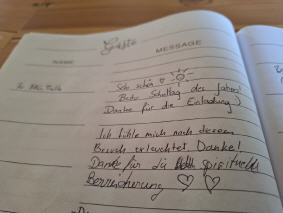 Gäste
NAME MESSAGE
Sehr schön
Bester Schultag des Jahres!
Danke für die Einladung
Ich fühle mich nach diesem
Besuch erleuchtet Danke!
Danke für die spirituelle
Bereicherung